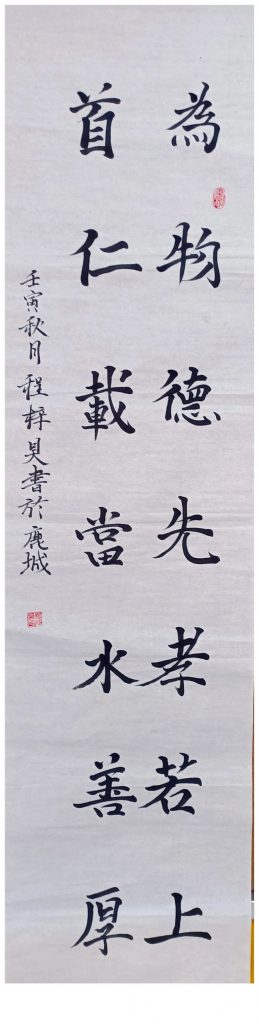 為物德先孝若上
首仁載當水善厚
壬寅秋月程梓書於鹿城